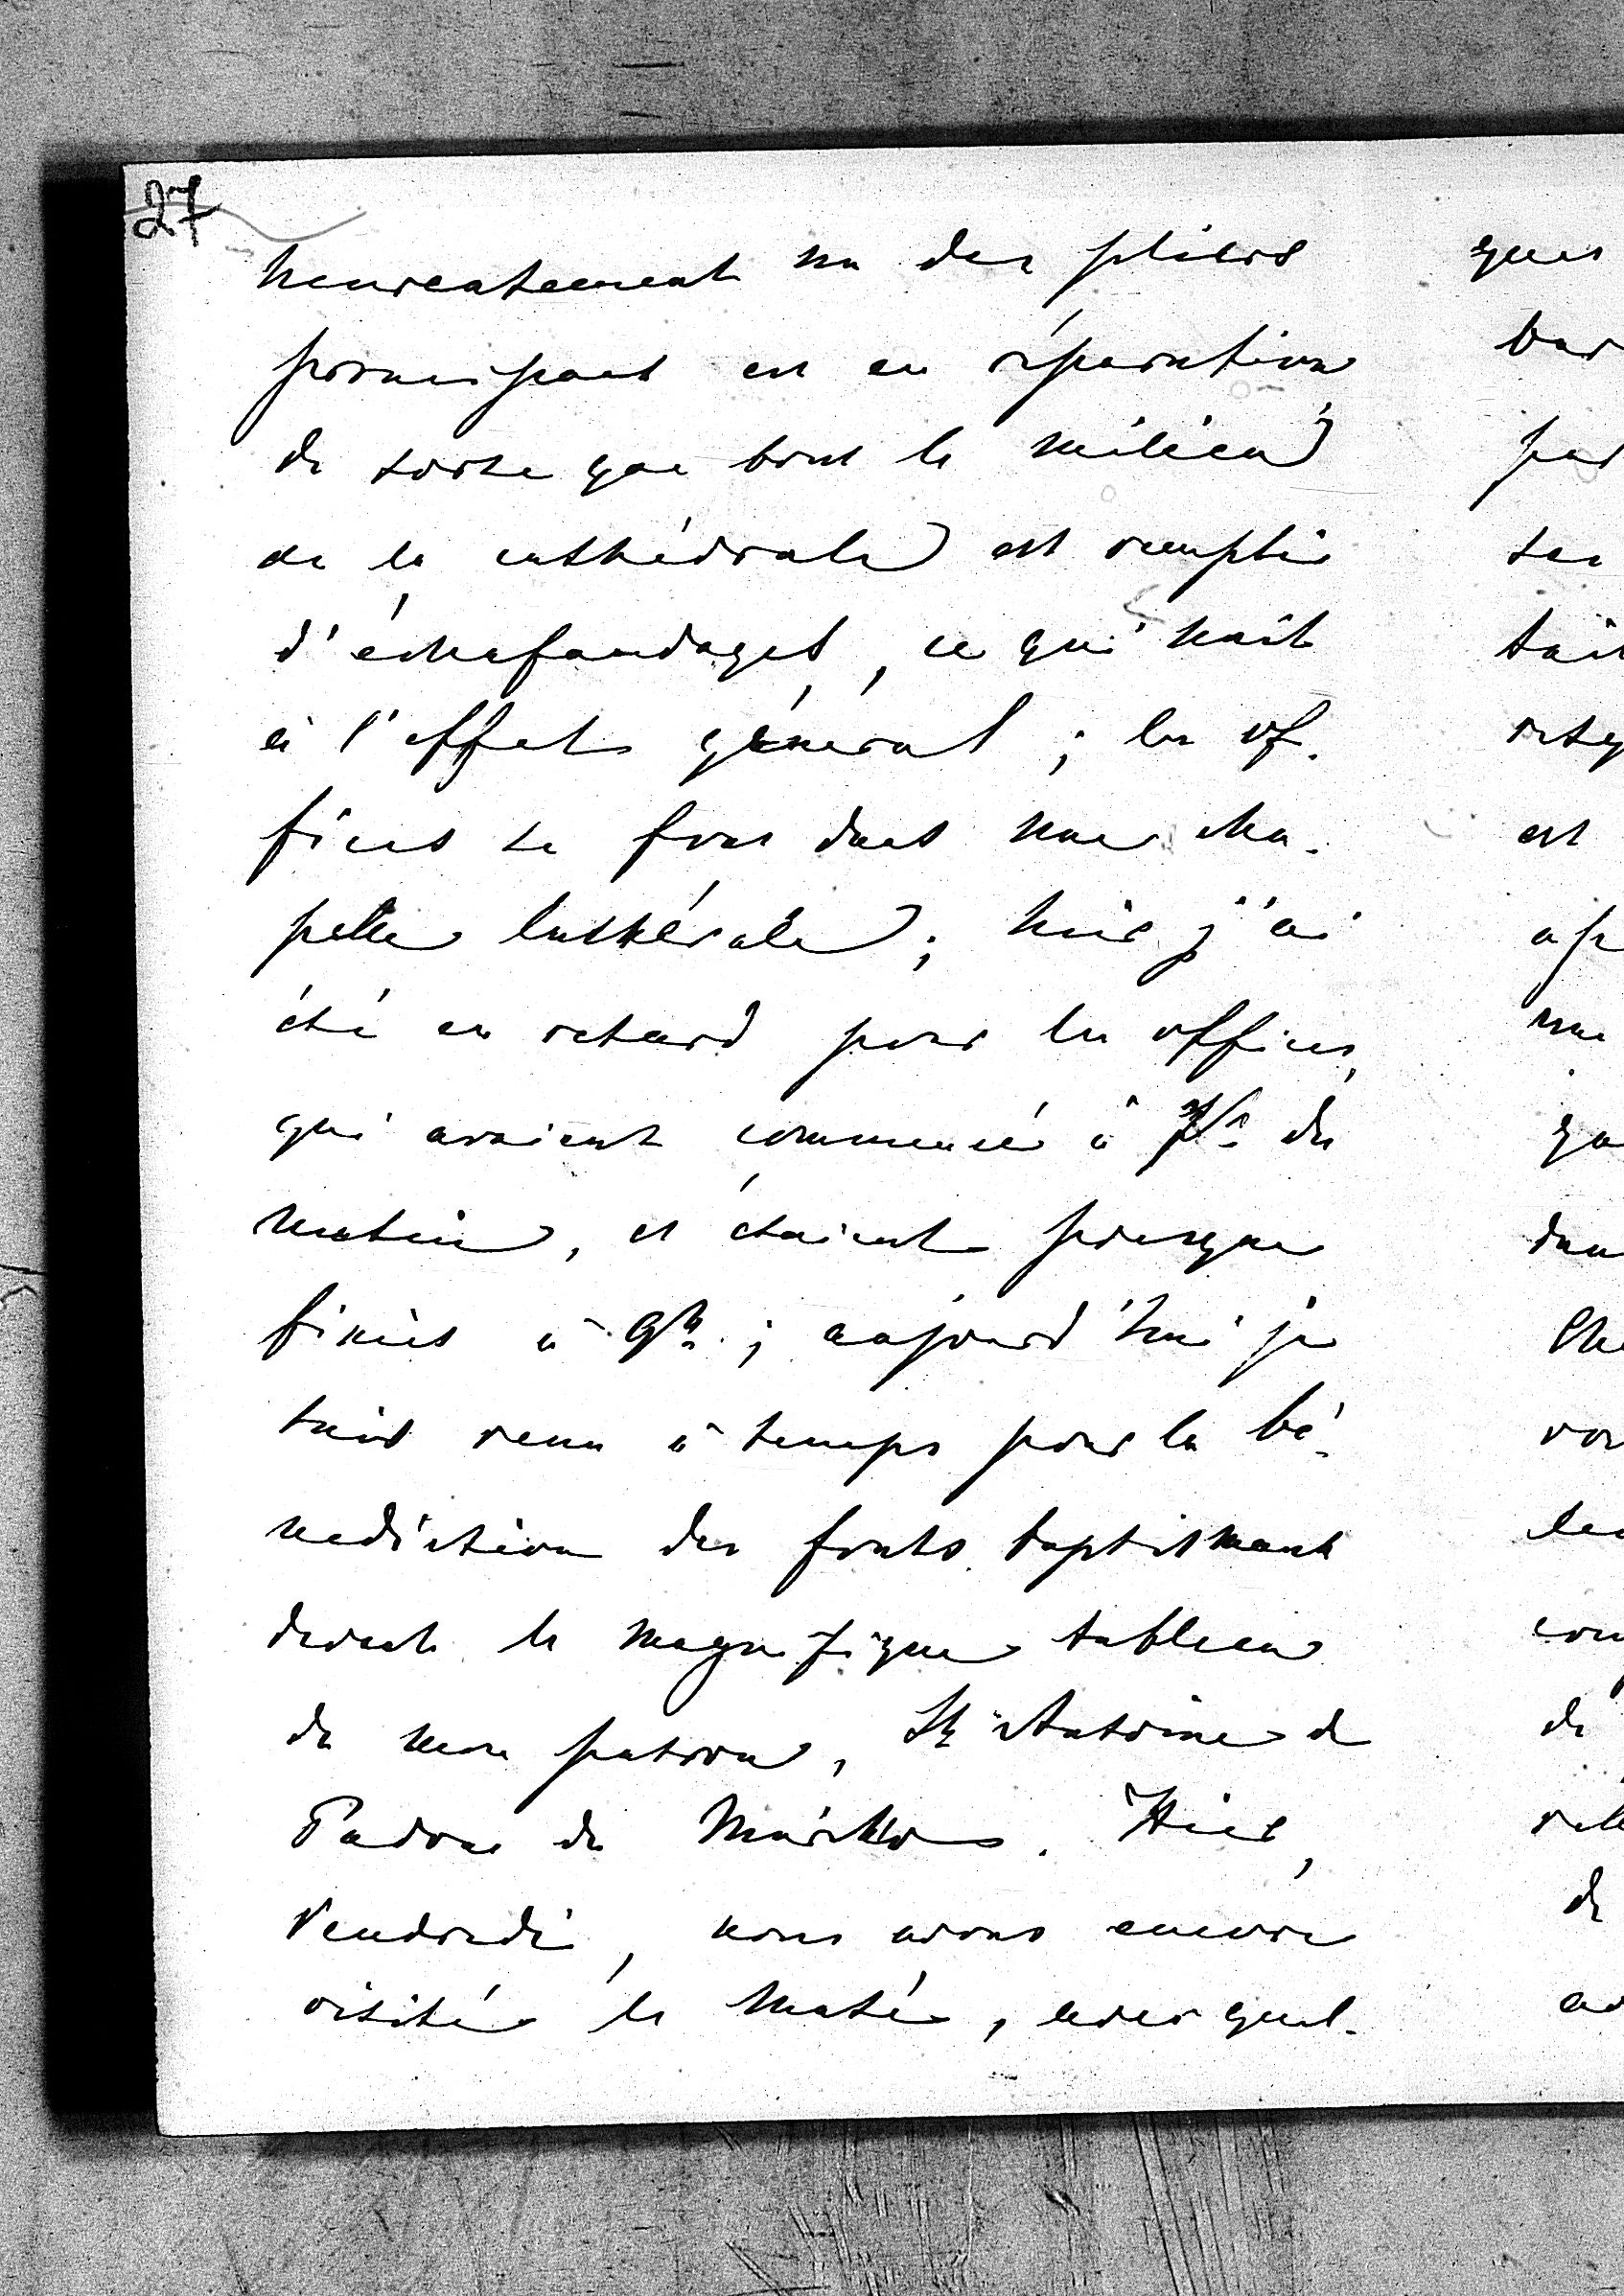 27
heureusement un des piliers
principaux est en réparation
de sorte que tout le milieu
de la cathédrale est remplie
d'échafaudages, ce qui nuit
à l'effet général ; les of-
fices se font dans une cha-
pelle lathérale ; hier j'ai
été en retard pour les offices,
qui avaient commencé à 7h du
matin, et étaient presque
finies à 9h ; aujourd'hui je
suis venu à temps pour la bé-
nediction des fonts baptismaux
devant le magnifique tableau
de mon patron, St Antoine de
Padoue de Murillo. Hier,
Vendredi, nous avons encore
visité le Musée, avec quel-
ques
est
de
de